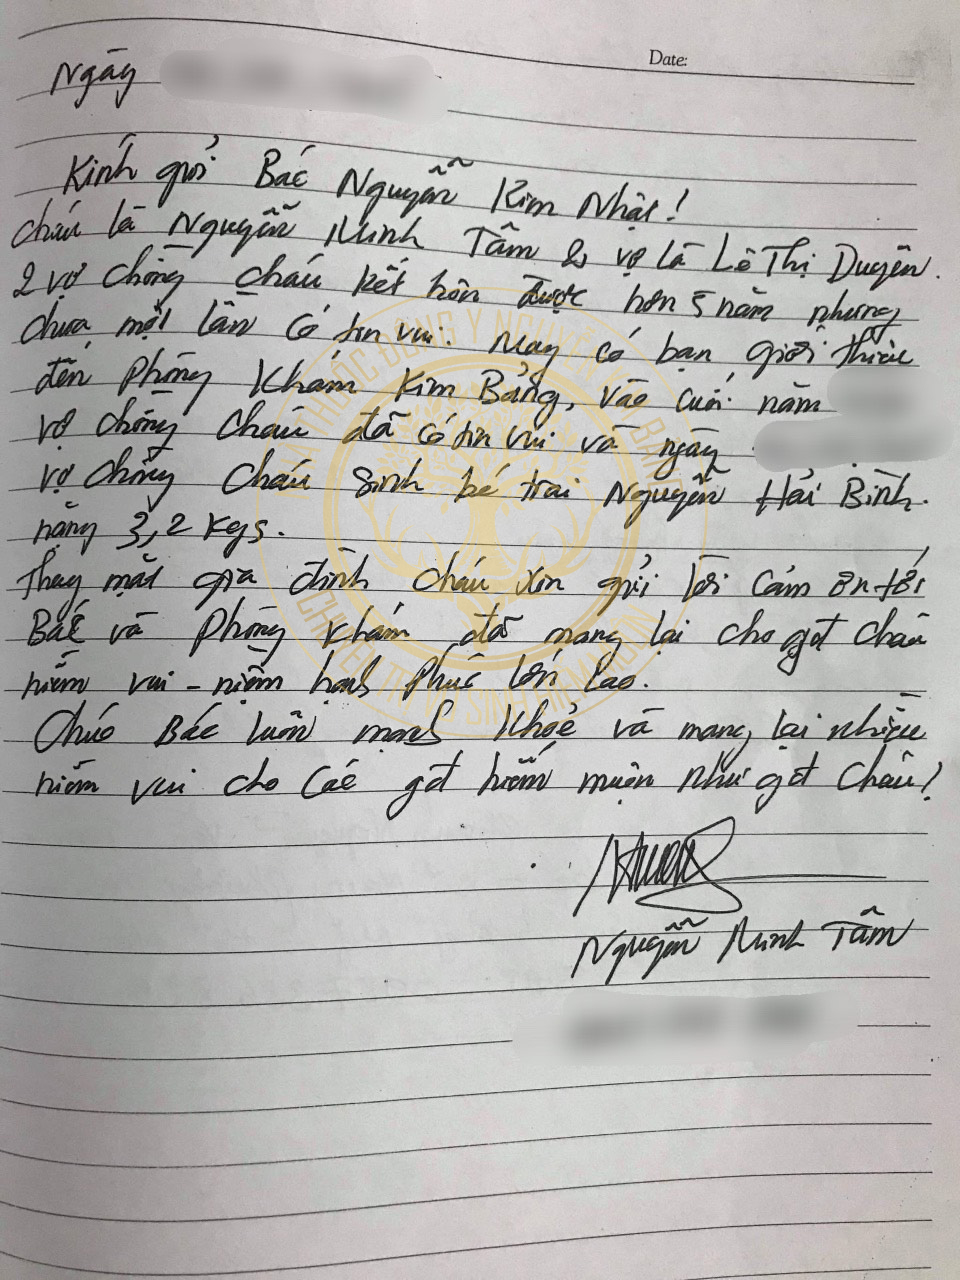 Date:
Ngày
Kính gửi Bác Nguyễn Kim Nhật!
cháu là Nguyễn Minh Tâm & vợ là Lê Thị Duyên.
2 vợ chồng cháu kết hôn được hơn 5 năm nhưng
chưa một lần có tin vui. May có bạn giới thiệu
đến Phòng Khám Kim Bảng, vào cuối năm
vợ chồng cháu đã có tin vui và ngày
vợ chồng cháu sinh bé trai Nguyễn Hải Bình.
nặng 3,2 kgs.
Thay mặt gia đình cháu xin gửi lời cám ơn tới
Bác và Phòng khám đã mang lại cho gđ cháu
niềm vui - niềm hạnh phúc lớn lao.
Chúc Bác luôn mạnh khoẻ và mang lại nhiều
niềm vui cho các gđ hiếm muộn như gđ cháu!
Nguyễn Minh Tâm